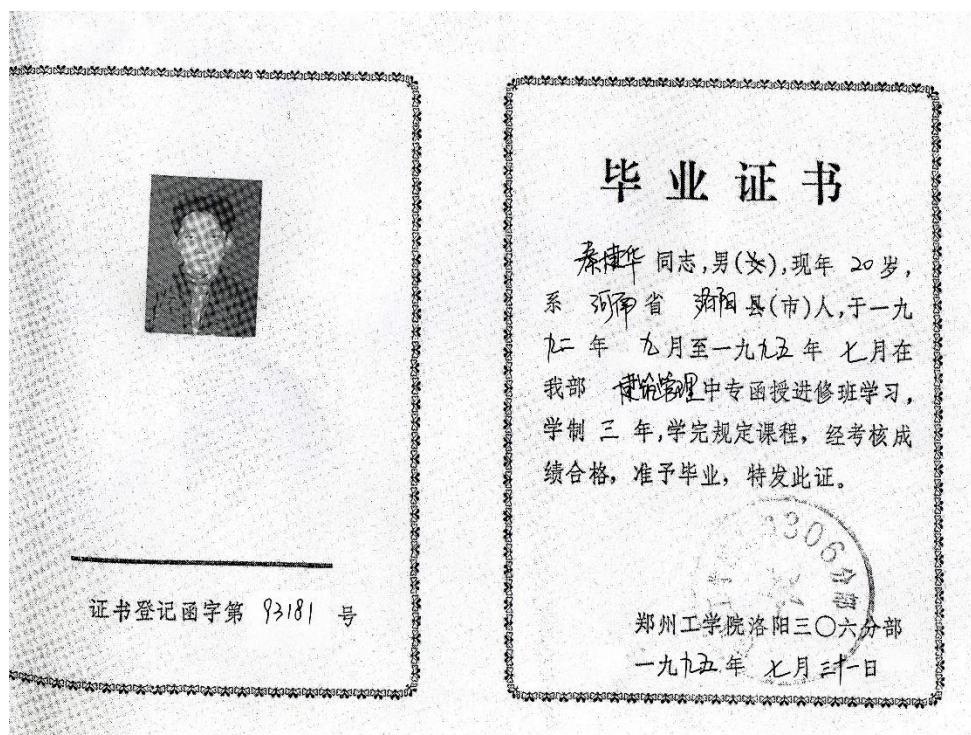 证书登记函字第 93181 号
毕业证书
秦建华 同志,男(女),现年 20 岁,
系 河南 省 洛阳 县(市)人,于一九
九二 年 九月至一九九五 年 七月在
我部 建筑管理中专函授进修班学习,
学制 三 年,学完规定课程,经考核成
绩合格,准予毕业,特发此证。
306分部
郑州工学院洛阳三〇六分部
一九九五年 七月三十一日